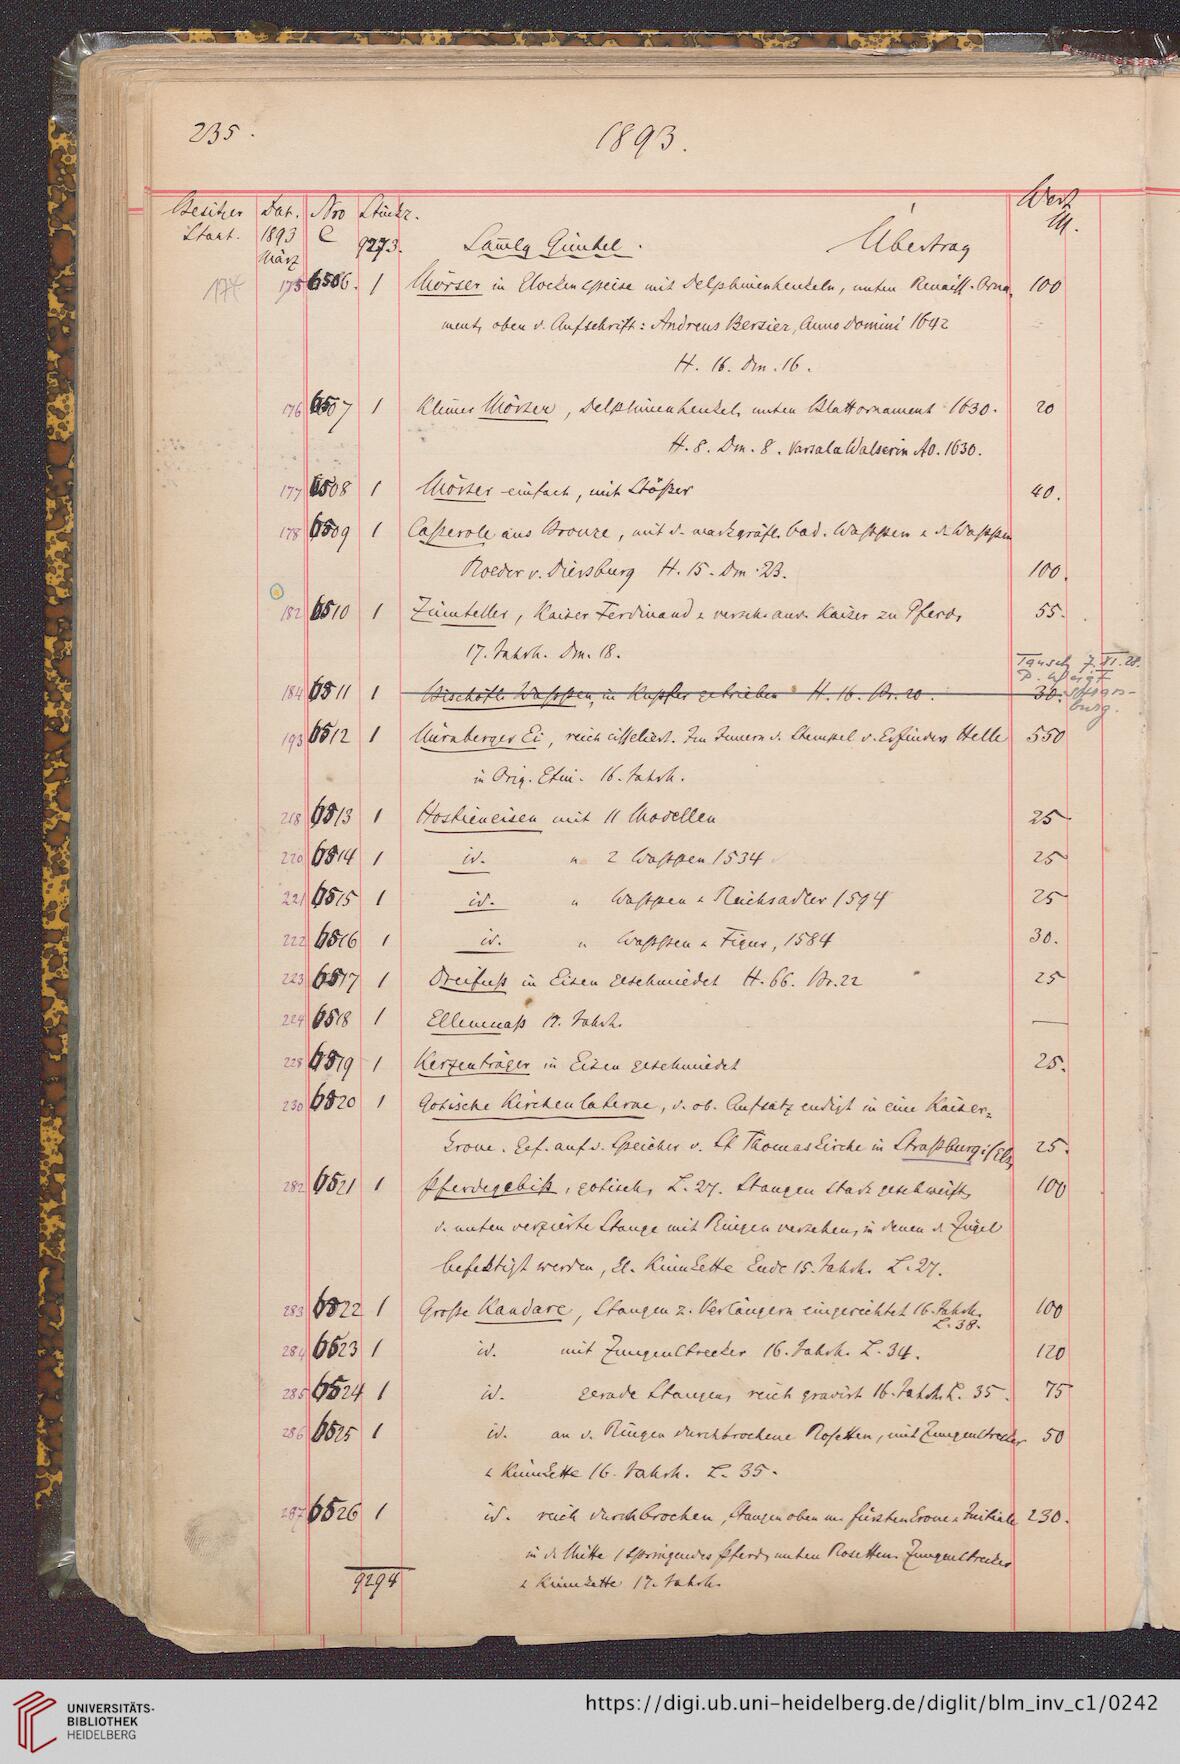 235.
1893.
Besitzer Dat. Nro Stückz. Wert
Staat. 1893 C 9273. Sam̅lg Gimbel. Übertrag M.
März
174 175 6506. 1 Mörser in Glockenspeise mit Delphinenhenkeln, unten Renaiss. Orna- 100
ment, oben d. Aufschrift: Andreas Bersier, Anno Domini 1642
H. 16. Dm. 16.
176 6507 1 Kleiner Mörser, Delphinenhenkel, unten Blattornament 1630. 20
H. 8. Dm. 8. Walserin Ao. 1630.
177 6508 1 Mörser einfach, mit Stößer 40.
178 6509 1 Casserole aus Bronze, mit d. markgräfl. bad. Wappen u. d. Wappen
Roeder v. Diersburg H. 15. Dm. 23. 100.
182 6510 1 Zinnteller, Kaiser Ferdinand u. versch. and. Kaiser zu Pferd, 55.
17. Jahrh. Dm. 18.
Tausch 7.XI.28.
184 6511 1 Bischöfl. Wappen, in Kupfer getrieben H. 16. Br. 20. 30.
burg.
193 6512 1 Nürnberger Ei, reich cisseliert. Im Innern d. Stempel d. Erfinders Helle 550
in Orig. Etui. 16. Jahrh.
218 6513 1 Hostieneisen mit 11 Modellen 25
220 6514 1 id. " 2 Wappen 1534 25
221 6515 1 id. " Wappen u. Reichsadler 1594 25
222 6516 1 id. " Wappen u. Figur, 1584 30.
223 6517 1 Dreifuß in Eisen geschmiedet H. 66. Br. 22 25
224 6518 1 Ellenmaß 17. Jahrh. —
228 6519 1 Kerzenträger in Eisen geschmiedet 25.
230 6520 1 Gotische Kirchenlaterne, d. ob. Aufsatz endigt in eine Kaiser=
krone. Gef. auf d. Speicher d. St Thomaskirche in Straßburg i/Els. 25.
282 6521 1 Pferdegebiß, gotisch, L. 27. Stangen stark geschweift, 100
d. unten verzierte Stange mit Ringen versehen, in denen d. Zügel
befestigt werden, kl. Kinnkette Ende 15. Jahrh. L. 27.
283 6522 1 Große Kandare, Stangen z. Verlängern eingerichtet 16. Jahrh. 100
L. 38.
284 6523 1 id. mit Zungenstrecker 16. Jahrh. L. 34. 120
285 6524 1 id. gerade Stangen, reich gravirt 16. Jahrh. L. 35. 75
286 6525 1 id. an d. Ringen durchbrochene Rosetten, mit Zungenstrecker 50
u. Kinnkette 16. Jahrh. L. 35.
287 6526 1 id. reich durchbrochen, Stangen oben m. Fürstenkrone u. Initiale 230.
in d. Mitte 1 springendes Pferd, unten Rosetten. Zungenstrecker
9294 u. Kinnkette 17. Jahrh.
UNIVERSITÄTS-
BIBLIOTHEK
HEIDELBERG
https://digi.ub.uni-heidelberg.de/diglit/blm_inv_c1/0242